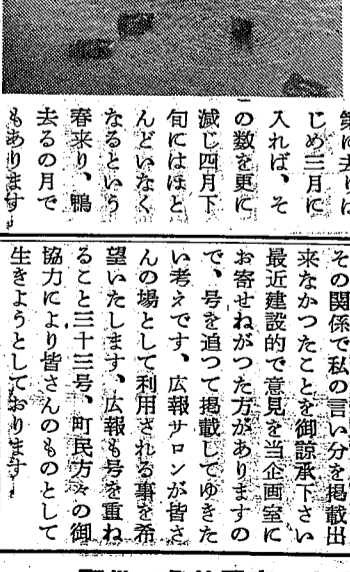 第に去りは
じめ三月に
入れば、そ
の数を更に
減じ四月下
旬にはほと
んどいなく
なるという
春来り、鴨
去るの月で
もあります
その関係で私の言い分を掲載出
来なかつたことを御諒承下さい
最近建設的で意見を当企画室に
お寄せねがつた方がありますの
で、号を追つて掲載してゆきた
い考えです、広報サロンが皆さ
んの場として利用される事を希
望いたします、広報も号を重ね
ること三十三号、町民方々の御
協力により皆さんのものとして
生きようとしております